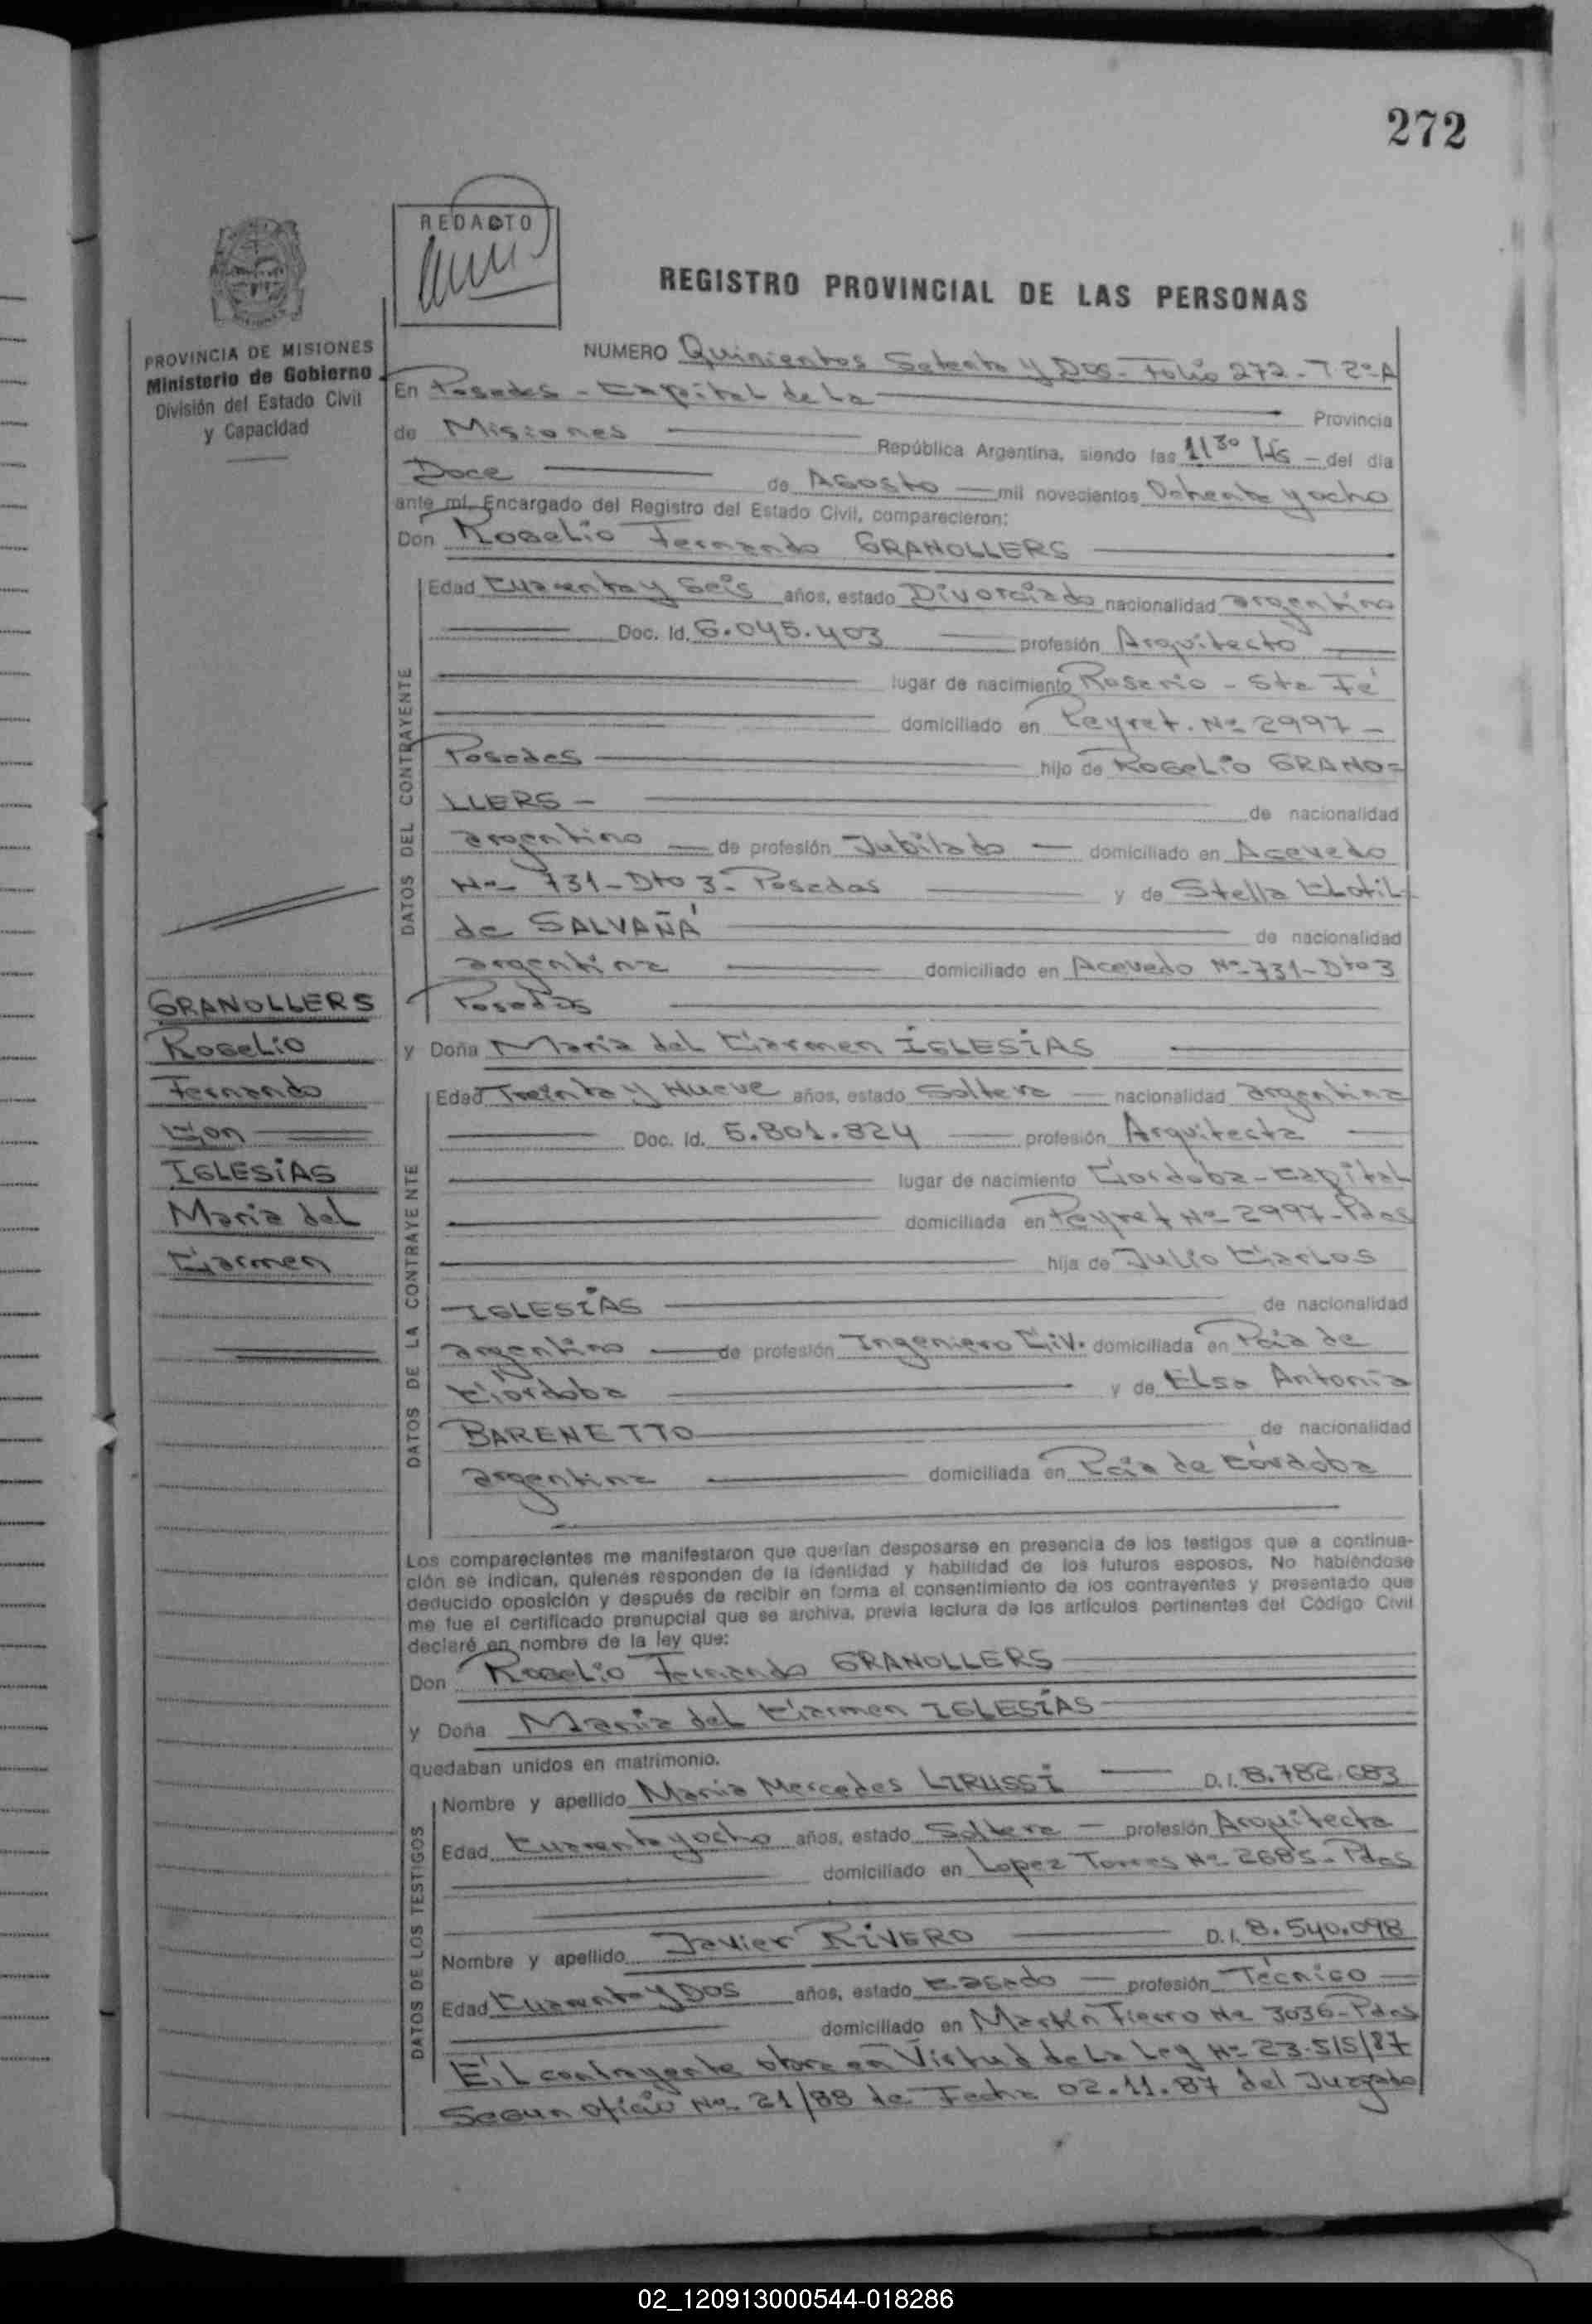 272
REDACTO
REGISTRO PROVINCIAL DE LAS PERSONAS
PROVINCIA DE MISIONES
Ministerio de Gobierno
División del Estado Civil
y Capacidad
NUMERO Quinientos Setenta y Dos - Folio 272 - T 2º A
En Posadas - Capital de La Provincia
de Misiones República Argentina, siendo las 11 30 Hs - del día
Doce de Agosto - mil novecientos Ochenta y ocho
ante mí, Encargado del Registro del Estado Civil, comparecieron:
Don Rogelio Fernando GRANOLLERS
DATOS DEL CONTRAYENTE
Edad Cuarenta y Seis años, estado Divorciado nacionalidad argentino
Doc. Id. 6.045.403 profesión Arquitecto
lugar de nacimiento Rosario - Sta Fé
domiciliado en Peyret. Nº 2997 -
Posadas hijo de Rogelio GRANO=
LLERS - de nacionalidad
argentino - de profesión Jubilado - domiciliado en Acevedo
Nº 731 - Dto 3 - Posadas y de Stella Clotil-
de SALVAÑÁ de nacionalidad
argentina domiciliado en Acevedo Nº 731 - Dto 3
Posadas
GRANOLLERS
Rogelio
Fernando
Con
IGLESIAS
María del
Carmen
y Doña María del Carmen IGLESIAS
DATOS DE LA CONTRAYENTE
Edad Treinta y Nueve años, estado Soltera - nacionalidad argentina
Doc. Id. 5.801.824 profesión Arquitecta
lugar de nacimiento Córdoba - Capital
domiciliada en Peyret Nº 2997 - Pdas
hija de Julio Carlos
IGLESIAS de nacionalidad
argentino - de profesión Ingeniero Civ. domiciliada en Pcia de
Córdoba y de Elsa Antonia
BARENETTO de nacionalidad
argentina domiciliada en Pcia de Córdoba
Los comparecientes me manifestaron que querían desposarse en presencia de los testigos que a continua-
ción se indican, quienes responden de la identidad y habilidad de los futuros esposos. No habiéndose
deducido oposición y después de recibir en forma el consentimiento de los contrayentes y presentado que
me fue el certificado prenupcial que se archiva, previa lectura de los artículos pertinentes del Código Civil
declaré en nombre de la ley que:
Don Rogelio Fernando GRANOLLERS
y Doña María del Carmen IGLESIAS
quedaban unidos en matrimonio.
DATOS DE LOS TESTIGOS
Nombre y apellido María Mercedes LIRUSSI D.I. 8.782.683
Edad Cuarenta y ocho años, estado Soltera - profesión Arquitecta
domiciliado en Lopez Torres Nº 2685 - Pdas
Nombre y apellido Javier RIVERO D.I. 8.540.098
Edad Cuarenta y Dos años, estado Casado - profesión Técnico
domiciliado en Martín Fierro Nº 3036 - Pdas
El contrayente obra en Virtud de La Ley Nº 23.515/87
Segun oficio Nº 21/88 de Fecha 02.11.87 del Juzgado
02_120913000544-018286